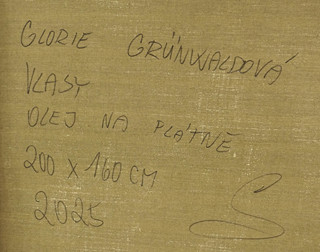 GLORIE GRÜNWALDOVÁ
VLASY
OLEJ NA PLÁTNĚ
200 x 160 CM
2025